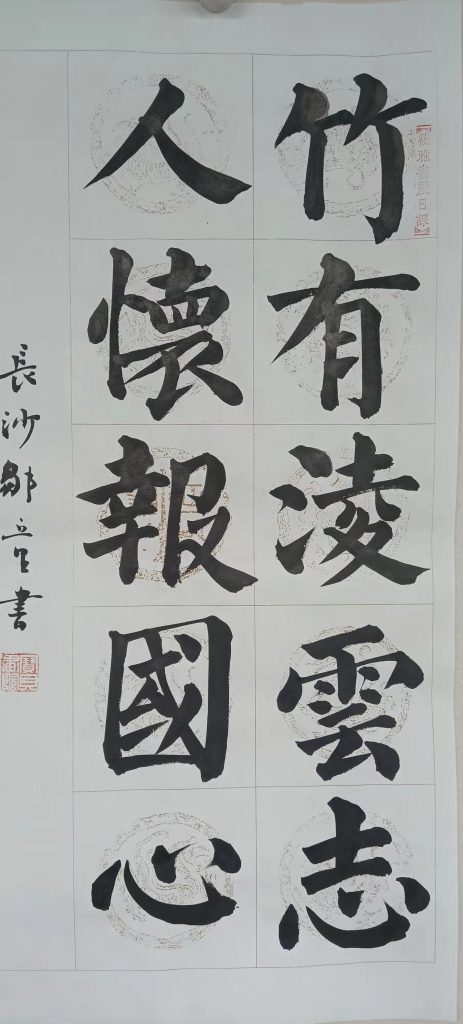 竹有淩雲志
人懷報國心
長沙鄒
書